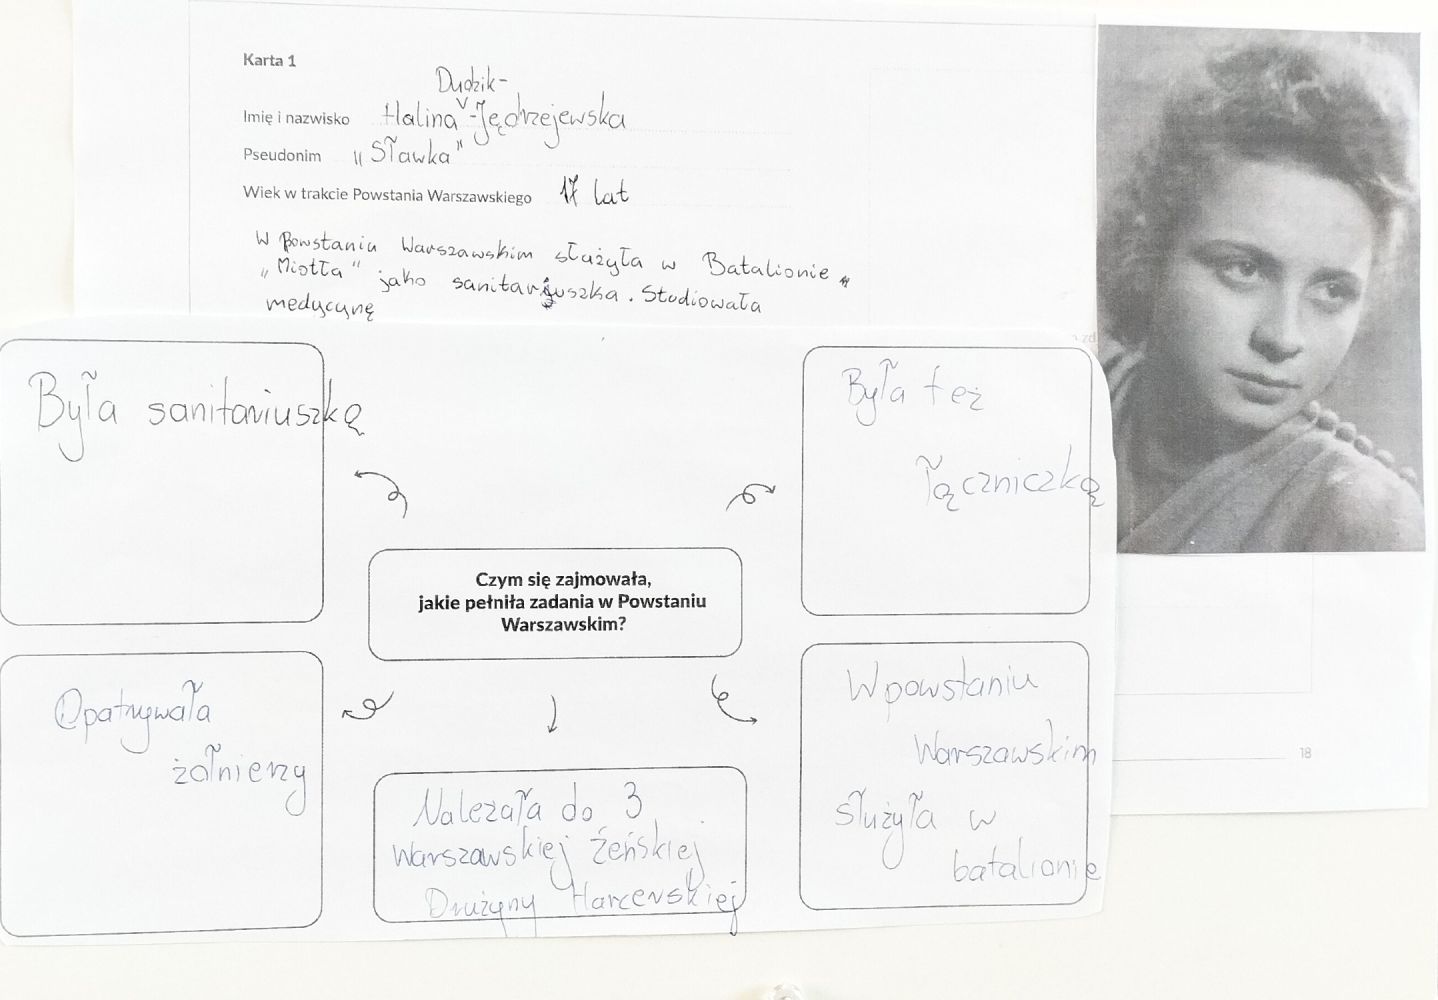 Karta 1
Dudzik-
Imię i nazwisko Halina v -Jędrzejewska
Pseudonim "Sławka"
Wiek w trakcie Powstania Warszawskiego 17 lat
W Powstaniu Warszawskim służyła w Batalionie
„Miotła" jako sanitariuszka. Studiowała
medycynę
Była sanitariuszką
Była też
łączniczką
Czym się zajmowała,
jakie pełniła zadania w Powstaniu
Warszawskim?
Opatrywała
żołnierzy
Należała do 3
Warszawskiej Żeńskiej
Drużyny Harcerskiej
W powstaniu
Warszawskim
służyła w
batalionie
18